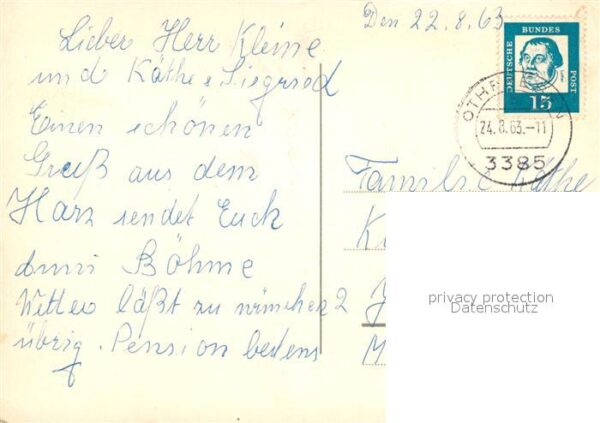 Den 22.8.63
Lieber Herr Kleine
und Käthe + Siegriod
Einen schönen
Gruß aus dem
Harz sendet Euch
Böhme
Wetter läßt zu wünschen
übrig. Pension bestens
DEUTSCHE
BUNDES
POST
15
24.8.63.-11
3385
Familie Käthe
privacy protection
Datenschutz